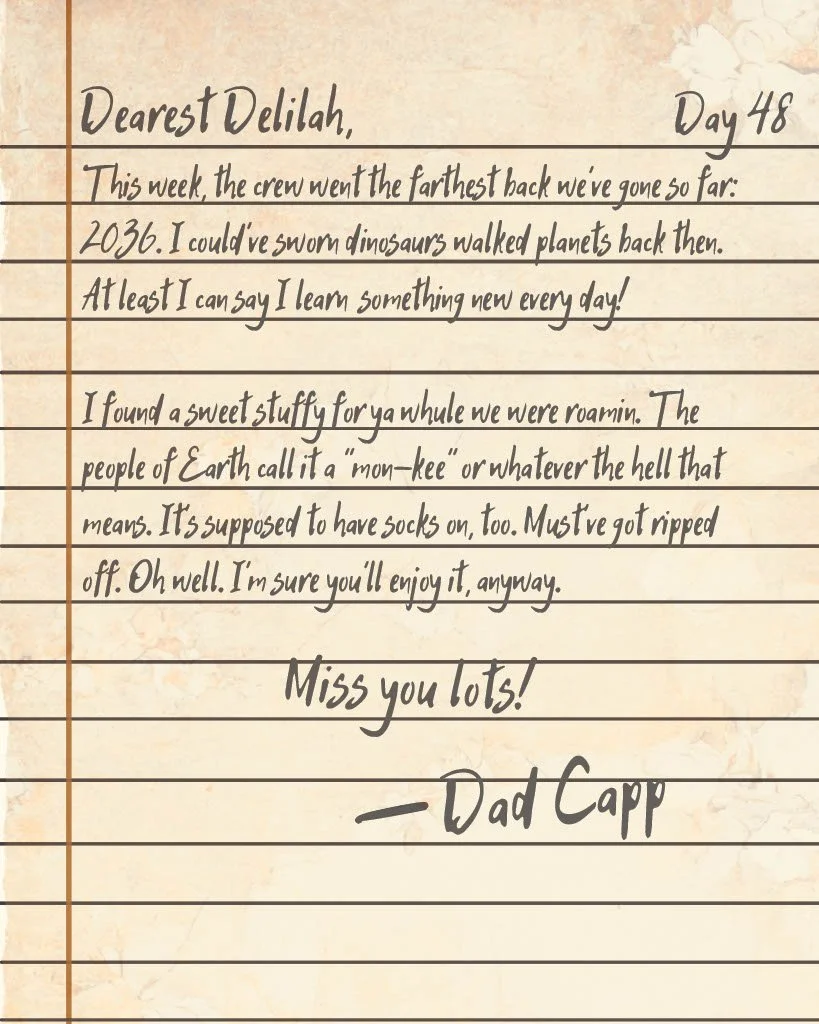 Dearest Delilah, Day 48
This week, the crew went the farthest back we've gone so far:
2036. I could've sworn dinosaurs walked planets back then.
At least I can say I learn something new every day!
I found a sweet stuffy for ya whule we were roamin. The
people of Earth call it a "mon-kee" or whatever the hell that
means. It's supposed to have socks on, too. Must've got ripped
off. Oh well. I'm sure you'll enjoy it, anyway.
Miss you lots!
— Dad Capp